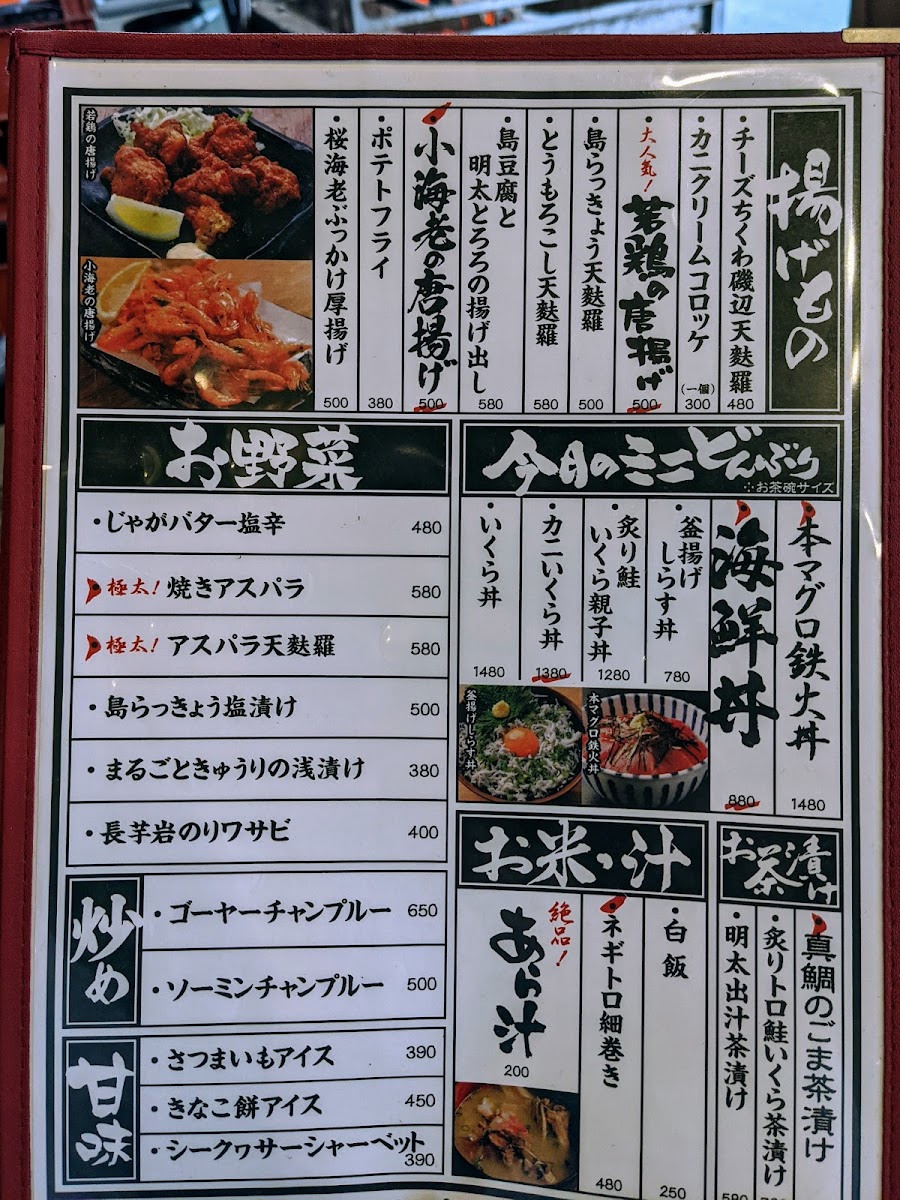 揚げもの
・チーズちくわ磯辺天麩羅
480
・カニクリームコロッケ
(一個)
300
・大人気!
若鶏の唐揚げ
500
・島らっきょう天麩羅
500
・とうもろこし天麩羅
580
・島豆腐と
明太とろろの揚げ出し
580
小海老の唐揚げ
500
・ポテトフライ
380
・桜海老ぶっかけ厚揚げ
500
若鶏の唐揚げ
小海老の唐揚げ
今月のミニどんぶり
※お茶碗サイズ
本マグロ鉄火丼
1480
海鮮丼
880
・釜揚げ
しらす丼
780
・炙り鮭
いくら親子丼
1280
・カニいくら丼
1380
・いくら丼
1480
釜揚げしらす丼
本マグロ鉄火丼
お野菜
・じゃがバター塩辛
480
極太! 焼きアスパラ
580
極太! アスパラ天麩羅
580
・島らっきょう塩漬け
500
・まるごときゅうりの浅漬け
380
・長芋岩のりワサビ
400
お茶漬け
真鯛のごま茶漬け
・炙りトロ鮭いくら茶漬け
・明太出汁茶漬け
580
お米・汁
・白飯
250
ネギトロ細巻き
480
絶品!
あら汁
200
炒め
・ゴーヤーチャンプルー
650
・ソーミンチャンプルー
500
甘味
・さつまいもアイス
390
・きなこ餅アイス
450
・シークヮサーシャーベット
390